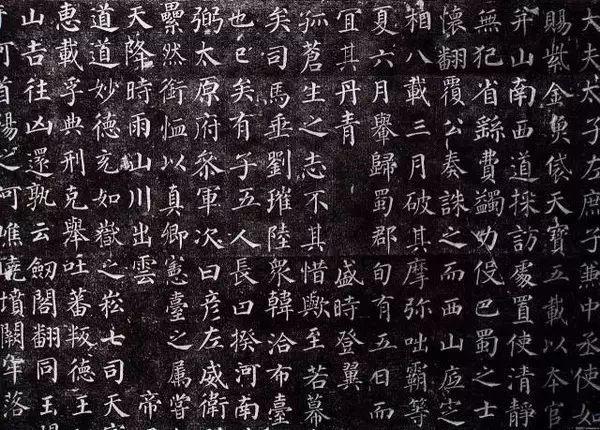 大夫太子左庶子兼中丞使如
賜紫金魚袋天寶五載以本官
并山南西道採訪處置使清靜
無犯省繇費蠲力伇巴蜀之士
懷翻覆公奏誅之而西山底定
相八載三月破其摩弥咄霸等
夏六月舉歸蜀郡旬有五日而
宜其丹青 盛時登翼
孤蒼生之志不其惜歟至若幕
矣司馬垂劉璀陸衆韓洽布臺
也已矣有子五人長曰揆河南
弼太原府叅軍次曰彦左威衛
纍然銜恤以真卿憲臺之属嘗
天降時雨山川出雲 帝
道道妙德充如嶽之崧七司天
惠載孚典刑克舉吐蕃叛德王
山吉往凶還孰云劒閣翻同玉
首陽之阿嶕嶢墳闕牢落